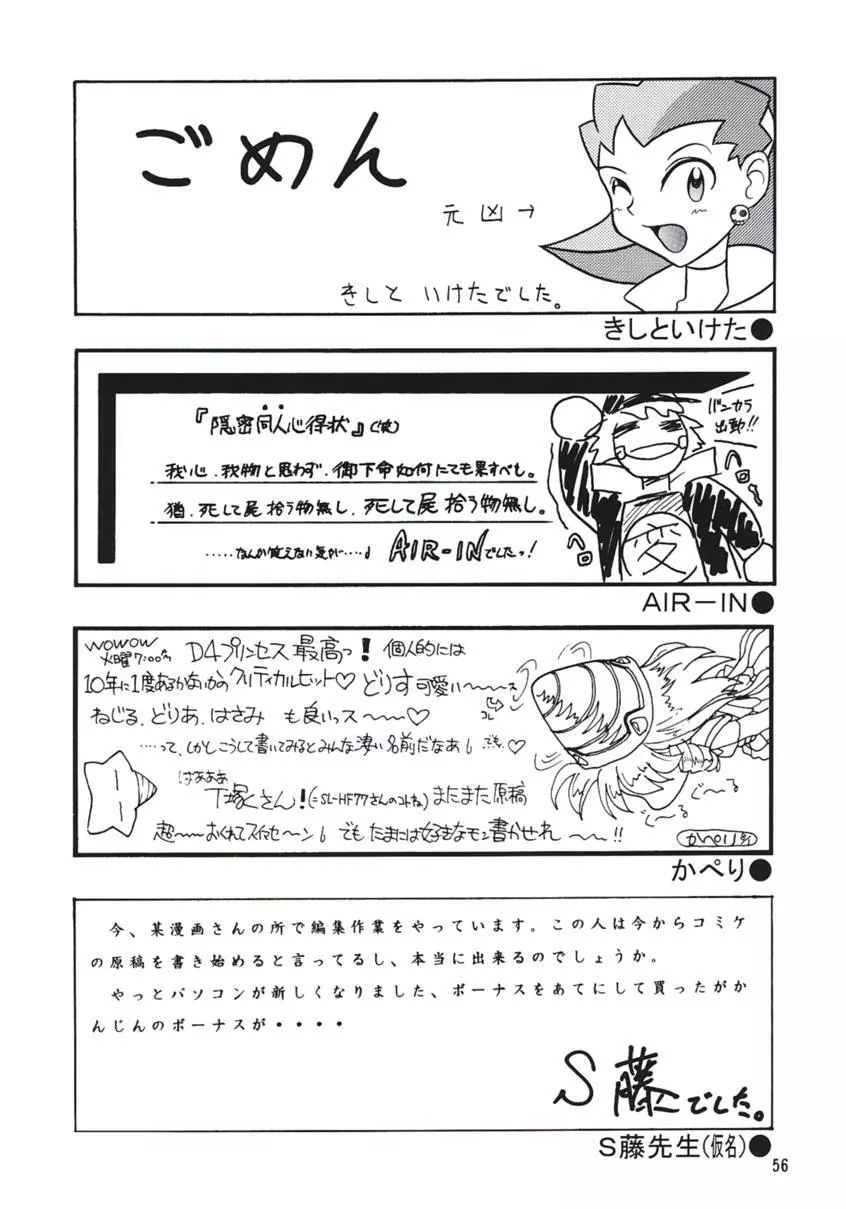 ごめん
元凶→
きしと いけたでした。
きしといけた●
『隠密同人心得状』(仮)
バンカラ
出動!!
我心、我物と思わず、御下命如何にても果すべも。
猶、死して屍拾う物無し、死して屍拾う物無し。
ヘロ
ヘロ
変
.....なんか覚えない気が....♪ AIR-INでしたっ!
AIR-IN●
WOWOW
火曜7:00から
D4プリンセス最高っ! 個人的には
10年に1度あるかないかのクリティカルヒット♡ どりす可愛い〜〜ス
コレ
ねじる、どりあ、はさみ も良いっス〜〜♡
....って、しかしこうして書いてみるとみんな凄い名前だなあ でも♡
はあああ
T塚くさん!(=SL-HF77さんのコトね)またまた原稿
超〜〜おくれてスイませ〜ン でもたまには好きなモン書かせれ〜〜!!
ぐ〜る
ぐ〜る
かぺり
かぺり●
今、某漫画さんの所で編集作業をやっています。この人は今からコミケ
の原稿を書き始めると言ってるし、本当に出来るのでしょうか。
やっとパソコンが新しくなりました、ボーナスをあてにして買ったがか
んじんのボーナスが・・・・
S藤でした。
S藤先生(仮名)●
56